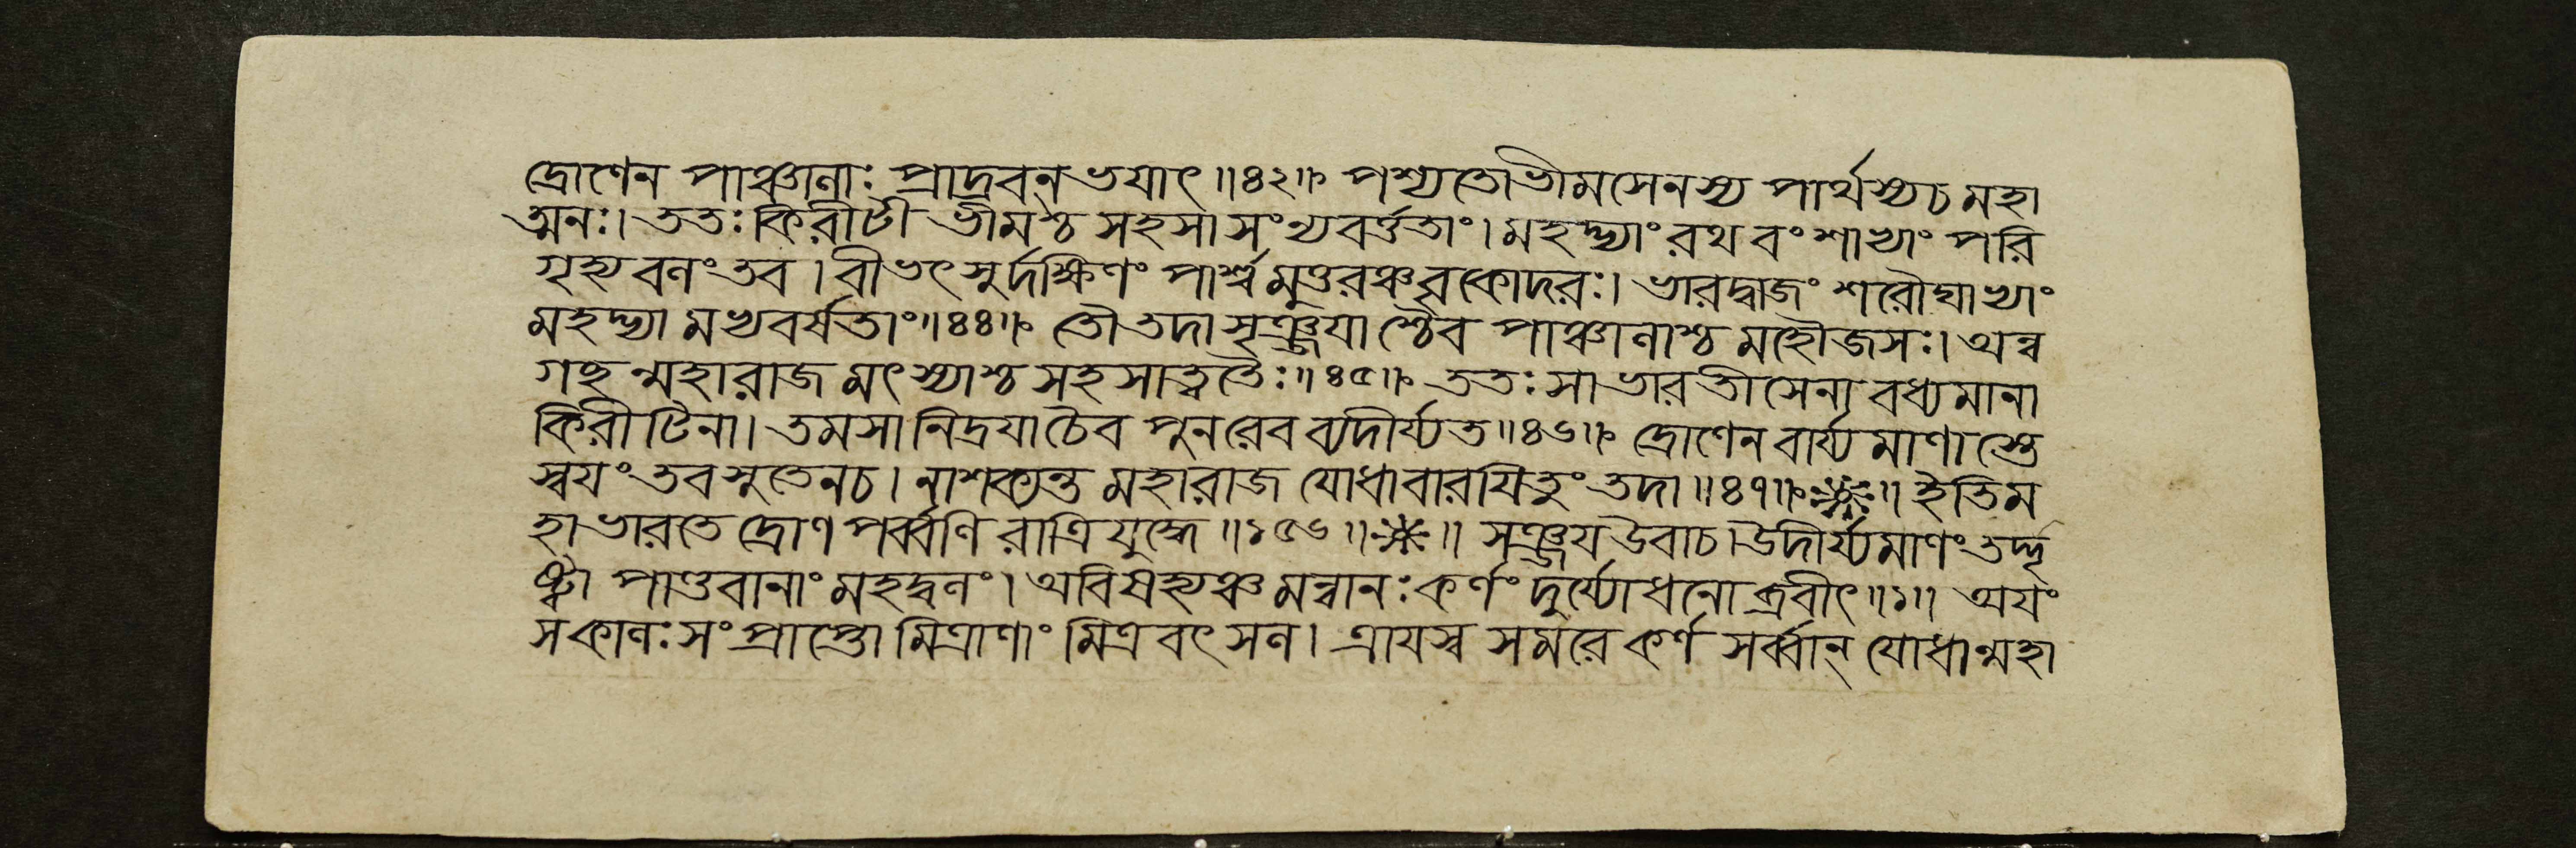 দ্রোণেন পাঞ্চালাঃ প্রাদ্রবন্ ভয়াৎ॥৪২॥ পশ্যতো ভীমসেনস্য পার্থস্য চ মহা
ত্মনঃ। ততঃ কিরীটী ভীমশ্চ সহসা সংন্যবর্ত্ততাং। মহদ্ভ্যাং রথবংশাভ্যাং পরি
গৃহ্য বলং তব। বীভৎসুর্দক্ষিণং পার্শ্বমুত্তরঞ্চ বৃকোদরঃ। ভারদ্বাজং শরৌঘাভ্যাং
মহদ্ভ্যামভ্যবর্ষতাং॥৪৪॥ তৌ তদা সৃঞ্জয়াশ্চৈব পাঞ্চালাশ্চ মহৌজসঃ। অন্ব
গছন্মহারাজ মৎস্যাশ্চ সহ সাত্বতৈঃ॥৪৫॥ ততঃ সা ভারতী সেনা বধ্যমানা
কিরীটিনা। তমসা নিদ্রয়া চৈব পুনরেব ব্যদীর্য্যত॥৪৬॥ দ্রোণেন বার্য্যমাণাস্তে
স্বয়ং তব সুতেন চ। নাশক্যন্ত মহারাজ যোধা বারয়িতুং তদা॥৪৭॥ ॥ ইতি ম
হাভারতে দ্রোণপর্ব্বণি রাত্রিযুদ্ধে॥১৫৬॥ ॥ সঞ্জয় উবাচ। উদীর্য্যমাণং তদ্দৃ
ষ্ট্বা পাণ্ডবানাং মহদ্বলং। অবিষহ্যঞ্চ মন্বানঃ কর্ণং দুর্য্যোধনোব্রবীৎ॥১॥ অয়ং
স কালঃ সংপ্রাপ্তো মিত্রাণাং মিত্রবৎসল। ত্রায়স্ব সমরে কর্ণ সর্ব্বান্ যোধান্মহা